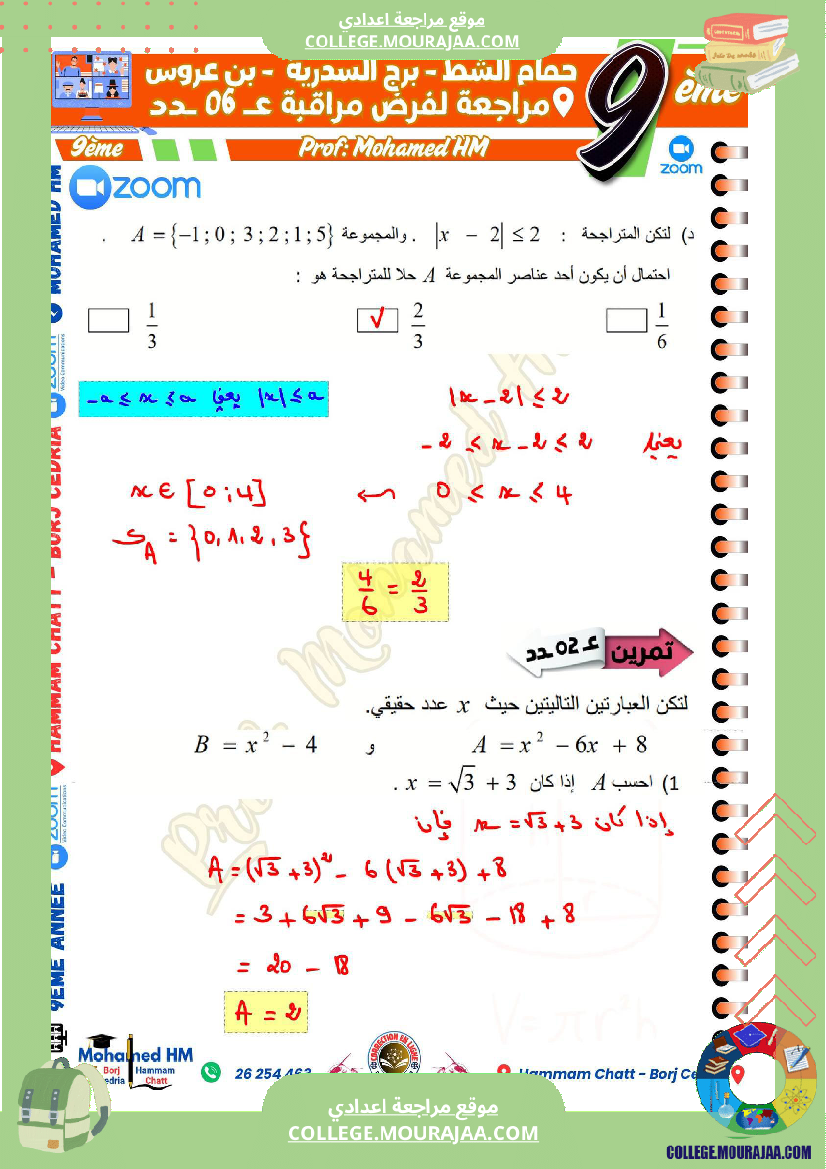 موقع مراجعة اعدادي
COLLEGE.MOURAJAA.COM
حمام الشط - برج السدرية - بن عروس
مراجعة لفرض مراقبة عـ 06 ـدد
9 ème
9ème
Prof: Mohamed HM
zoom
zoom
د) لتكن المتراجحة : |x − 2| ≤ 2 . والمجموعة A = {−1 ; 0 ; 3 ; 2 ; 1 ; 5} .
احتمال أن يكون أحد عناصر المجموعة A حلا للمتراجحة هو :
1/6
√ 2/3
1/3
|x − 2| ≤ 2
|x| ≤ a يعني −a ≤ x ≤ a
يعني −2 ≤ x − 2 ≤ 2
0 ≤ x ≤ 4 ↜ x ∈ [0 ; 4]
S_A = {0, 1, 2, 3}
4/6 = 2/3
تمرين عـ 02 ـدد
لتكن العبارتين التاليتين حيث x عدد حقيقي.
A = x² − 6x + 8 و B = x² − 4
1) احسب A إذا كان x = √3 + 3 .
إذا كان x = √3 + 3 فإن
A = (√3 + 3)² − 6 (√3 + 3) + 8
= 3 + 6√3 + 9 − 6√3 − 18 + 8
= 20 − 18
A = 2
V = πr²h
MOHAMED HM
zoom
Video Communications
HAMMAM CHATT - BORJ CEDRIA
zoom
Video Communications
9EME ANNEE
Mohamed HM
Borj
Hammam
Chatt
26 254 463
CORRECTION EN LIGNE
Hammam Chatt - Borj Ce
موقع مراجعة اعدادي
COLLEGE.MOURAJAA.COM
COLLEGE.MOURAJAA.COM